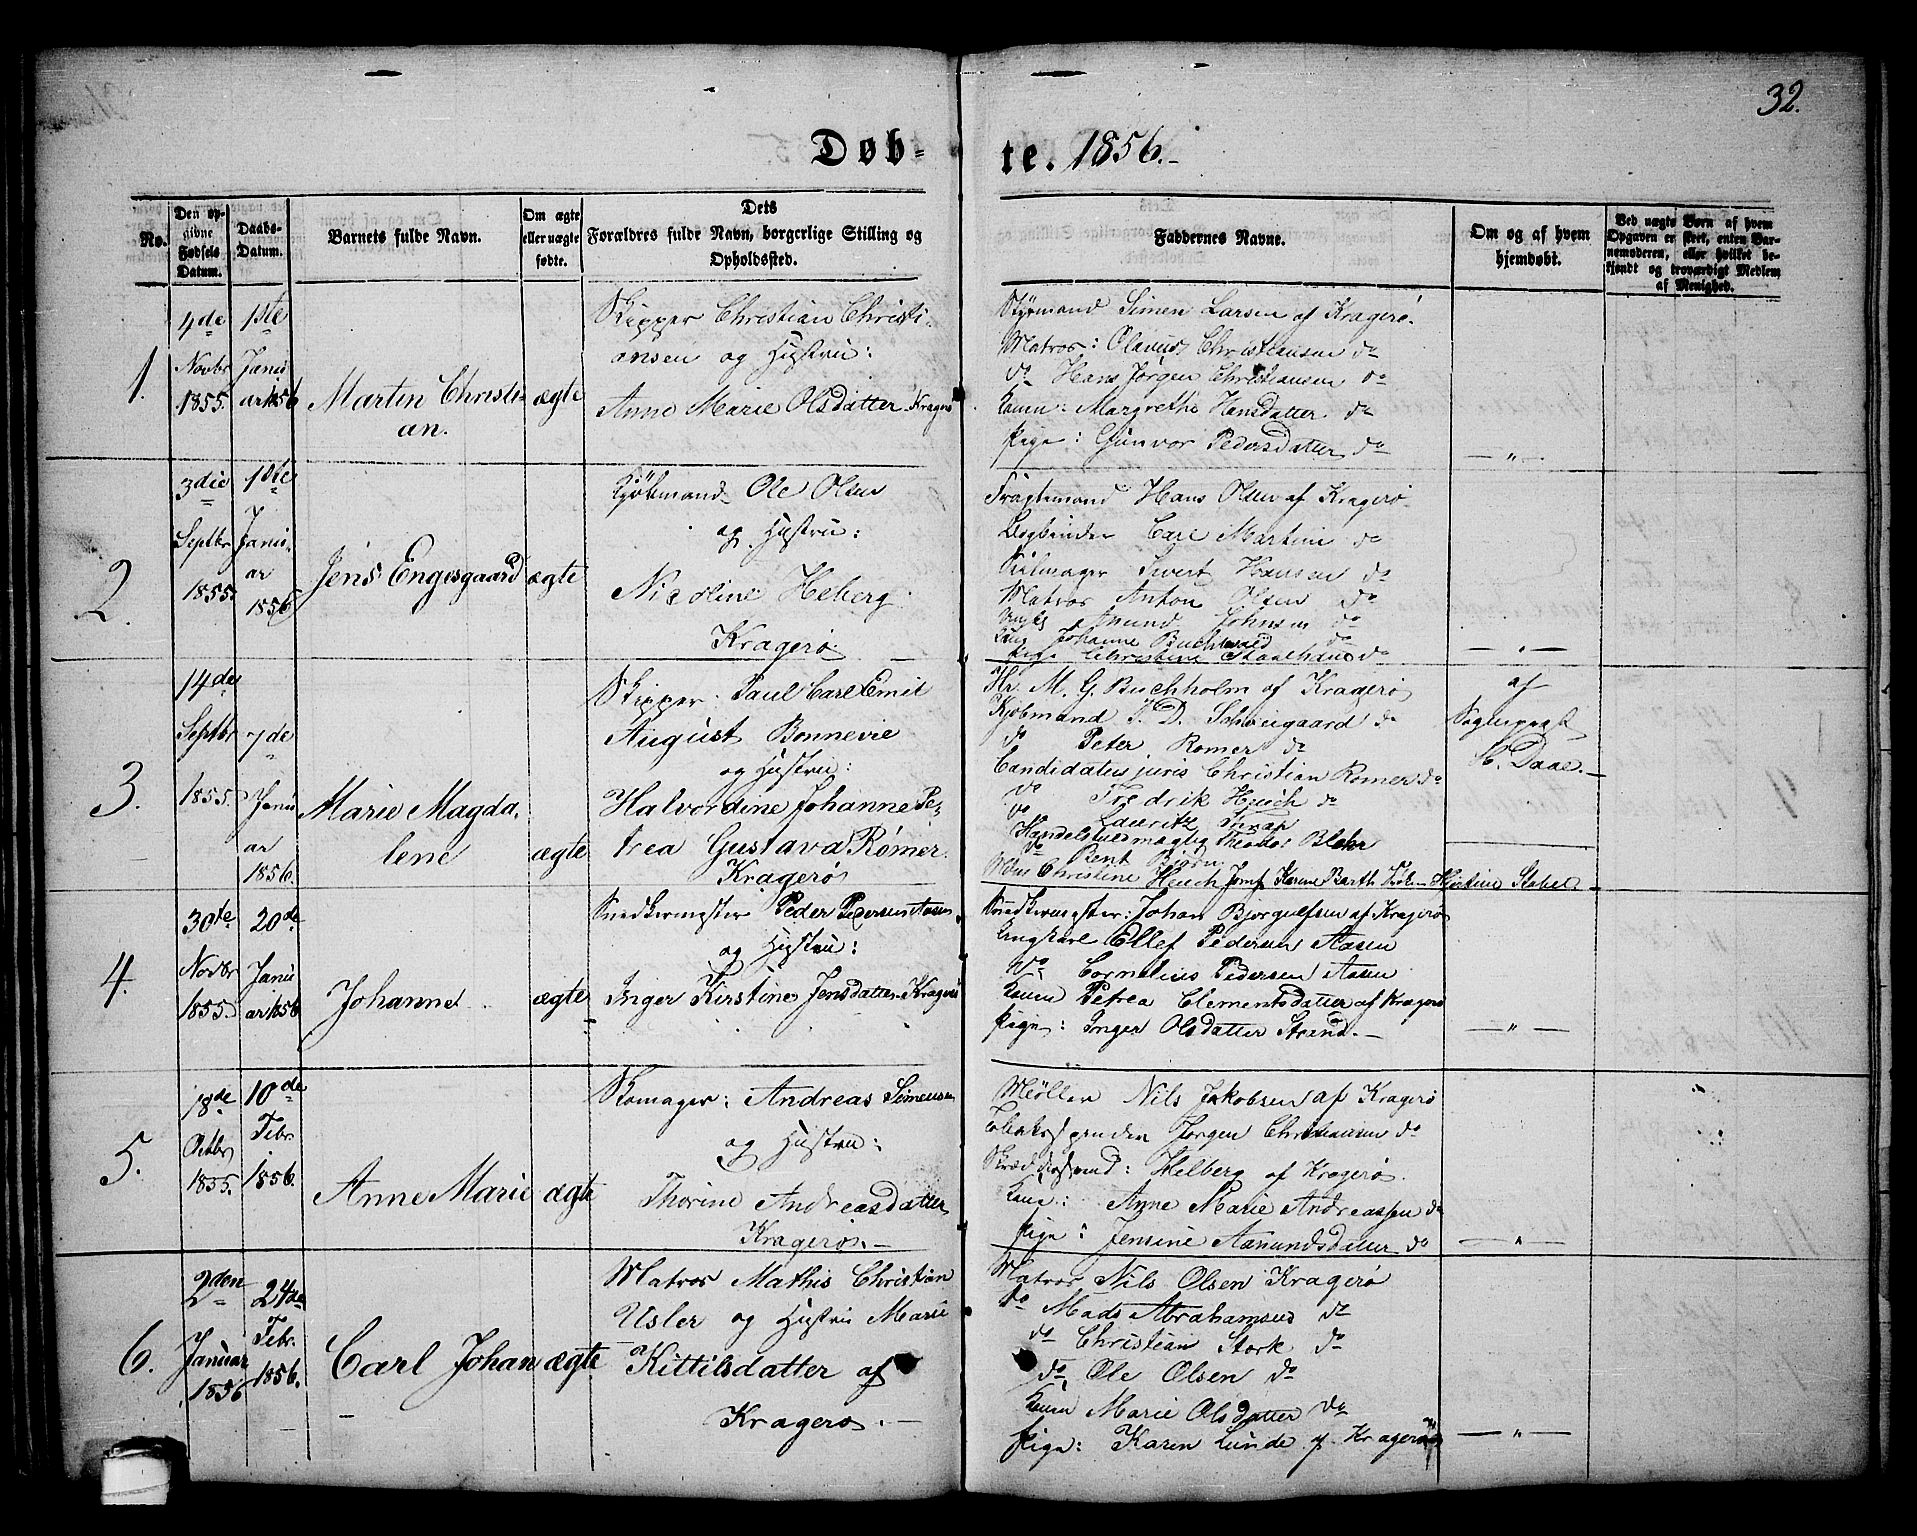 32.
Døb-
te. 1856.-
No.
Den op-
givne
Fødsels
Datum.
Daabs-
Datum.
Barnets fulde Navn.
Om ægte
eller uægte
fødte.
Dets
Forældres fulde Navn, borgerlige Stilling og
Opholdssted.
Faddernes Navne.
Om og af hvem
hjemdøbt.
Ved uægte Børn af hvem
Opgaven er skeet, enten Bar-
nemoderen, eller hvilket be-
kjendt og troværdigt Medlem
af Menighed.
1.
4de
Novbr
1855.
1ste
Janu
ar 1856
Martin Christi-
an.
ægte
Skipper Christian Christi-
ansen og Hustru:
Anne Marie Olsdatter Kragerø
Styrmand Simen Larsen af Kragerø.
Matros: Olavus Christiansen do
do Hans Jørgen Christiansen do
Konen: Margrethe Hansdatter do
Pige: Gunvor Pedersdatter do
— " —
2.
3die
Septbr
1855.
1ste
Janu-
ar
1856
Jens Engesgaard
ægte
Kjøbmand Ole Olsen
og Hustru:
Nicoline Heberg
Kragerø
Fragtemand Hans Olsen af Kragerø.
Bogbinder Carl Martini do
Hansen do
Matros Anton Olsen do
Johnsen do
Johanne Buchwald do
Pige Christine Staalhane do
— " —
3.
14de
Septbr
1855.
7de
Janu
ar
1856.
Marie Magda-
lene
ægte
Skipper: Paul Carl Emil
August Bonnevie
og Hustru:
Halvordine Johanne Pe-
trea Gustava Rømer.
Kragerø
Hr. M. G. Buchholm af Kragerø
Kjøbmand T. D. Schweigaard do
do Peter Rømer do
Candidatus juris Christian Rømer do
do Fredrik Heuch do
do Lauritz
Handelsfuldmægtig Theodor Blehr
do Bent Bjørn
Christine Heuch Jomf Karine Barth Kirstine Stabel
af
Sognepræst
C. Daae.-
4.
30te
Novbr
1855.
20de
Janu
ar 1856
Johanne
ægte
Snedkermester Peder Pedersen Aasen
og Hustru:
Inger Kirstine Jensdatter Kragerø
Snedkermester: Johan Bjørgulfsen af Kragerø
Ungkarl Ellef Pedersen Aasen
do Cornelius Pedersen Aasen
Konen Petrea Clementsdatter af Kragerø
Pige: Inger Olsdatter Strand.-
— " —
5.
18de
Octbr
1855.
10de
Febr.
1856.
Anne Marie
ægte
Skomager: Andreas Simensen
og Hustru:
Thorine Andreasdatter
Kragerø.-
Møller Nils Jakobsen af Kragerø
Tobakspinder Jørgen Christiansen do
Helberg af Kragerø.
Kone: Anne Marie Andreassen do
Pige: Jensine Aamundsdatter do
— " —
6.
2den
Januar
1856
24de
Febr.
1856.
Carl Johan
ægte
Matros Mathis Christian
Usler og Hustru Marie
Kittilsdatter af
Kragerø.-
Matros Nils Olsen Kragerø
do Mads Abrahamsen do
do Christian Stork do
do, Ole Olsen do
Konen Marie Olsdatter do
Pige: Karen Lunde af Kragerø
— " —